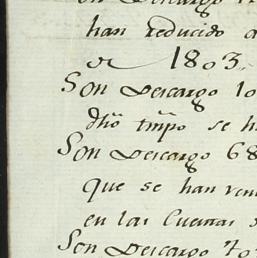 han reducido a
de 1803.
Son Descargo 10
dho tmpo se h
Son Descargo 68
que se han ven
en las Cuentas
Son Descargo 70